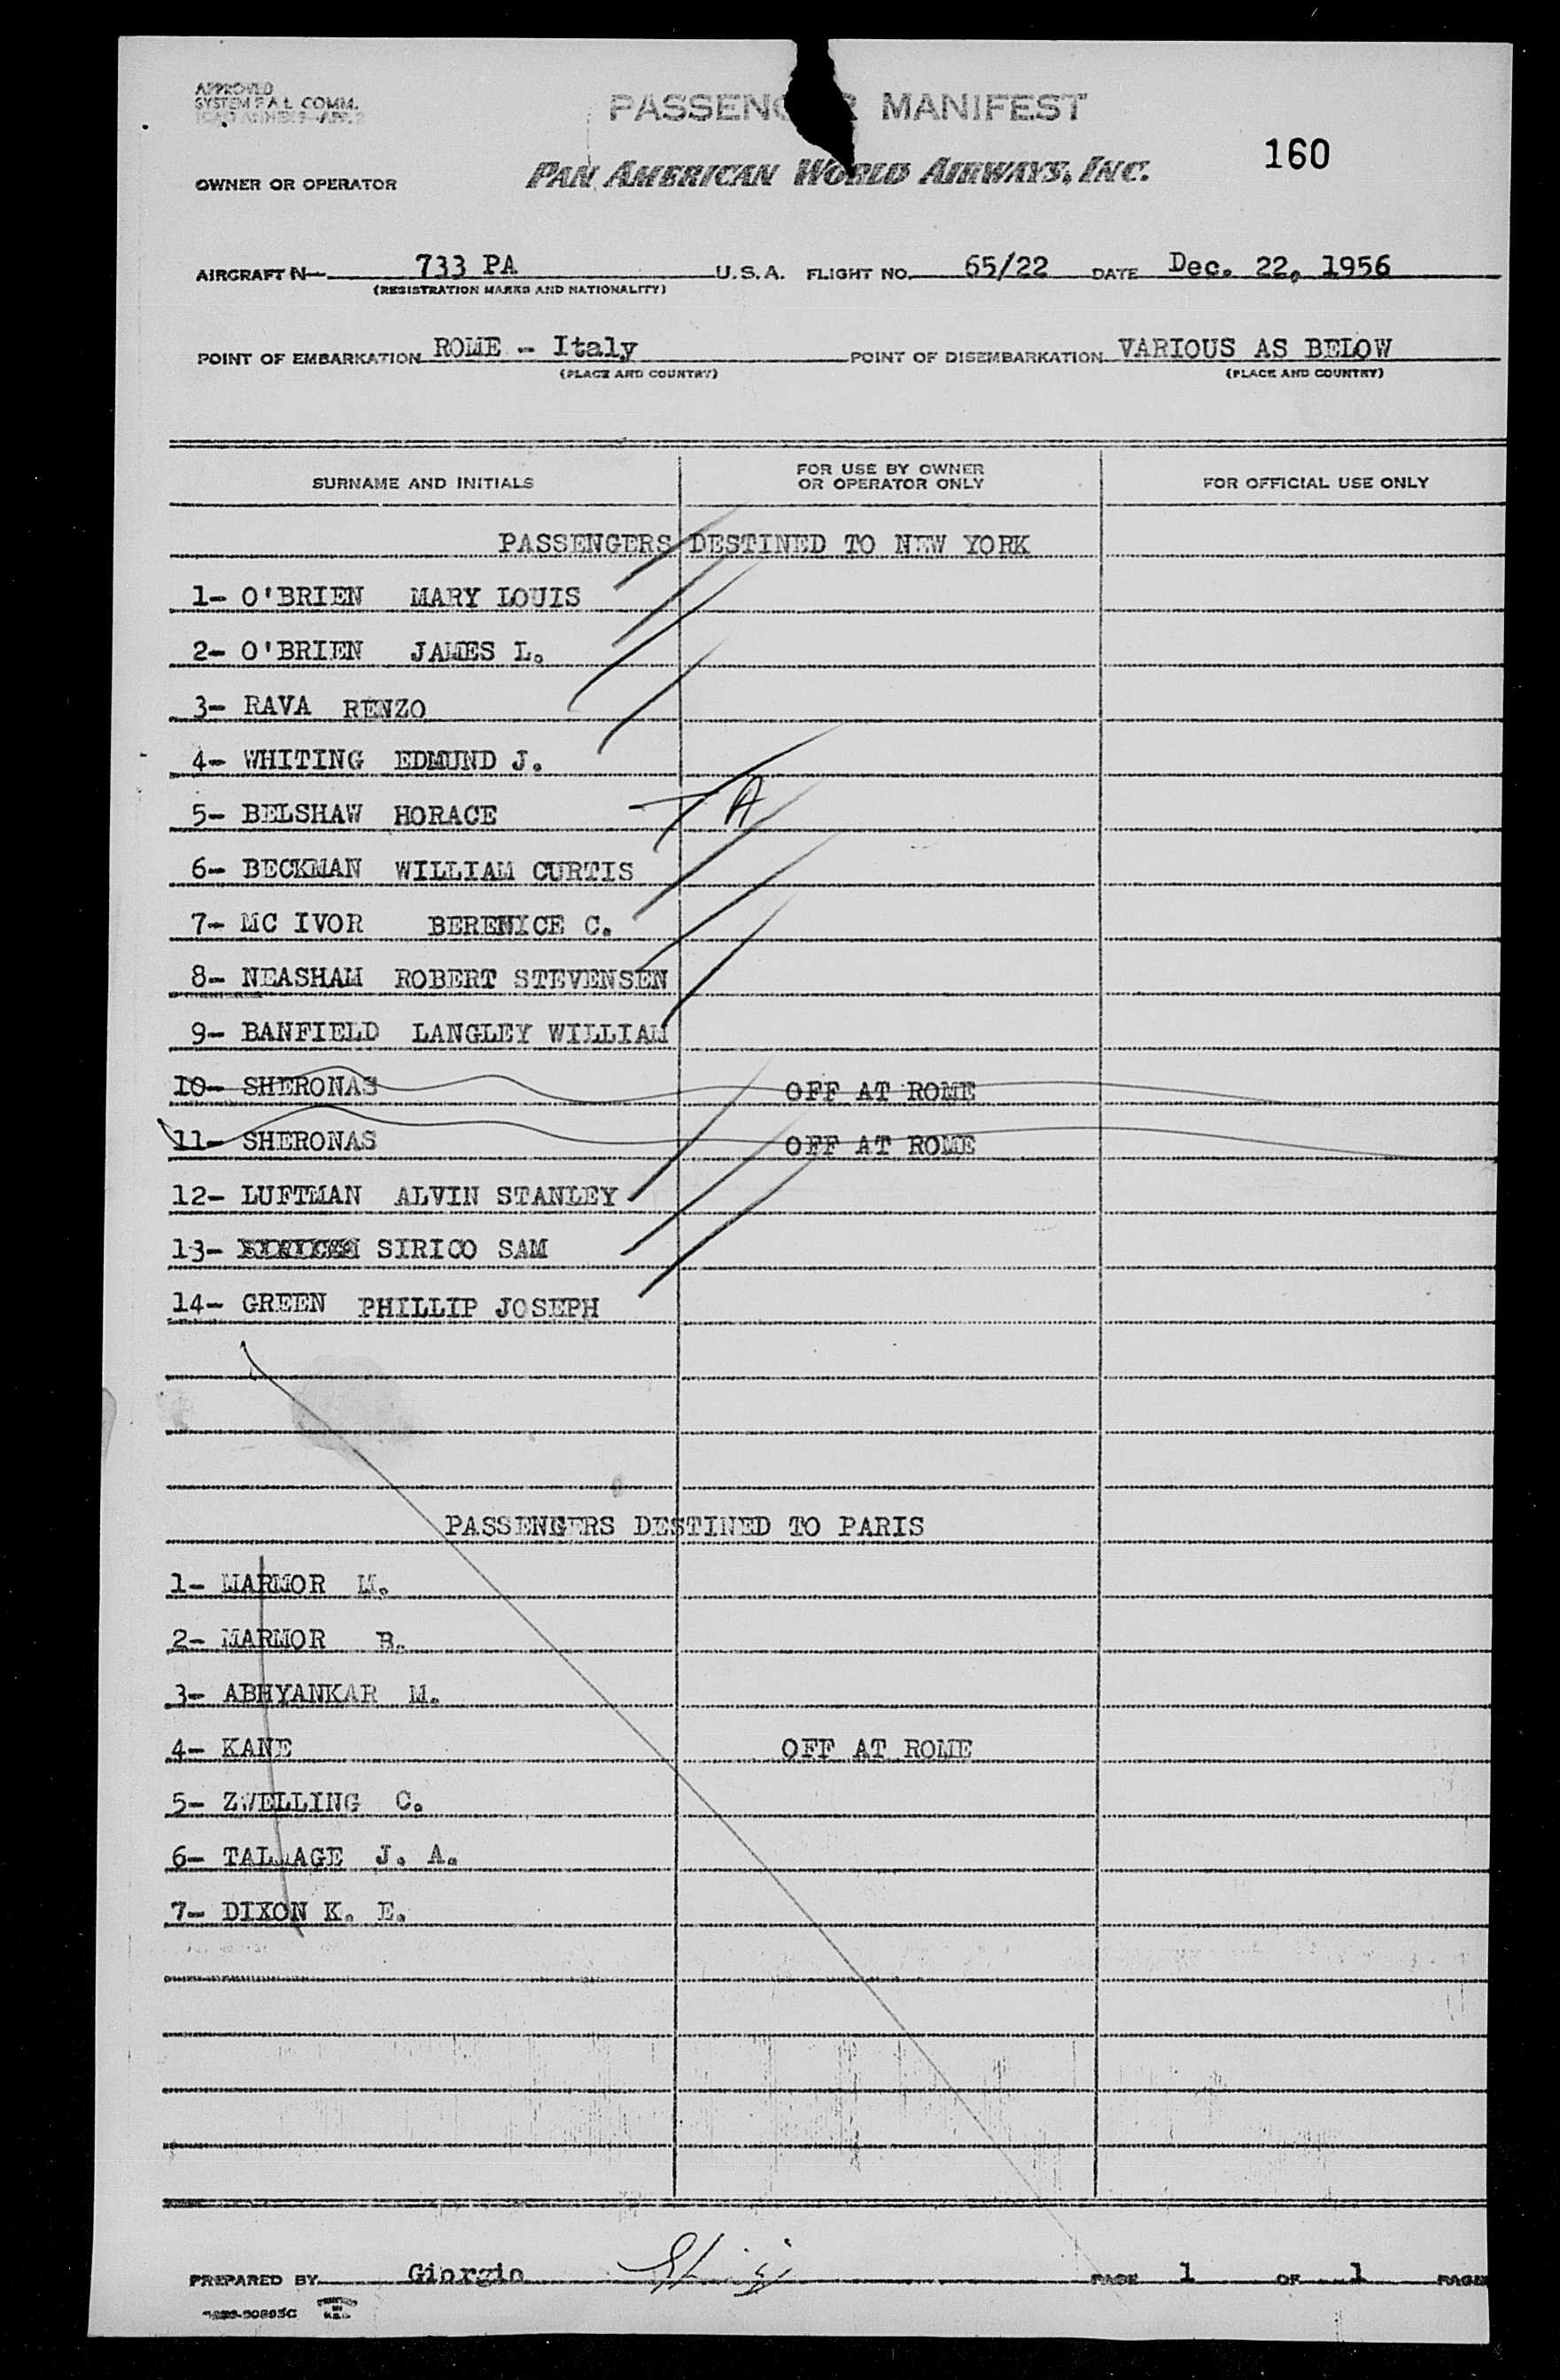 APPROVED
SYSTEM F A L COMM.
PASSENGER MANIFEST
160
OWNER OR OPERATOR
PAN AMERICAN WORLD AIRWAYS, INC.
AIRCRAFT N- 733 PA U.S.A. FLIGHT NO. 65/22 DATE Dec. 22, 1956
(REGISTRATION MARKS AND NATIONALITY)
POINT OF EMBARKATION ROME - Italy POINT OF DISEMBARKATION VARIOUS AS BELOW
(PLACE AND COUNTRY) (PLACE AND COUNTRY)
SURNAME AND INITIALS FOR USE BY OWNER OR OPERATOR ONLY FOR OFFICIAL USE ONLY
PASSENGERS DESTINED TO NEW YORK
1- O'BRIEN MARY LOUIS
2- O'BRIEN JAMES L.
3- RAVA RENZO
4- WHITING EDMUND J.
5- BELSHAW HORACE A
6- BECKMAN WILLIAM CURTIS
7- MC IVOR BERENICE C.
8- NEASHAM ROBERT STEVENSEN
9- BANFIELD LANGLEY WILLIAM
10- SHERONAS OFF AT ROME
11- SHERONAS OFF AT ROME
12- LUFTMAN ALVIN STANLEY
13- SIRICO SAM
14- GREEN PHILLIP JOSEPH
PASSENGERS DESTINED TO PARIS
1- MARMOR M.
2- MARMOR B.
3- ABHYANKAR M.
4- KANE OFF AT ROME
5- ZWELLING C.
6- TALMAGE J. A.
7- DIXON K. E.
PREPARED BY Giorgio PAGE 1 OF 1 PAGE